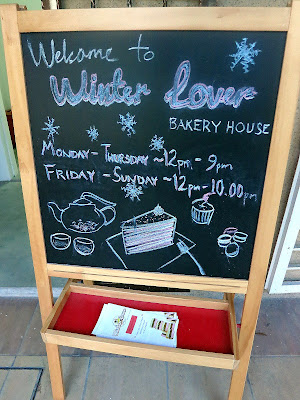 Welcome to
Winter Lover
BAKERY HOUSE
MONDAY - THURSDAY ~ 12pm - 9pm
FRIDAY - SUNDAY ~ 12pm - 10.00pm